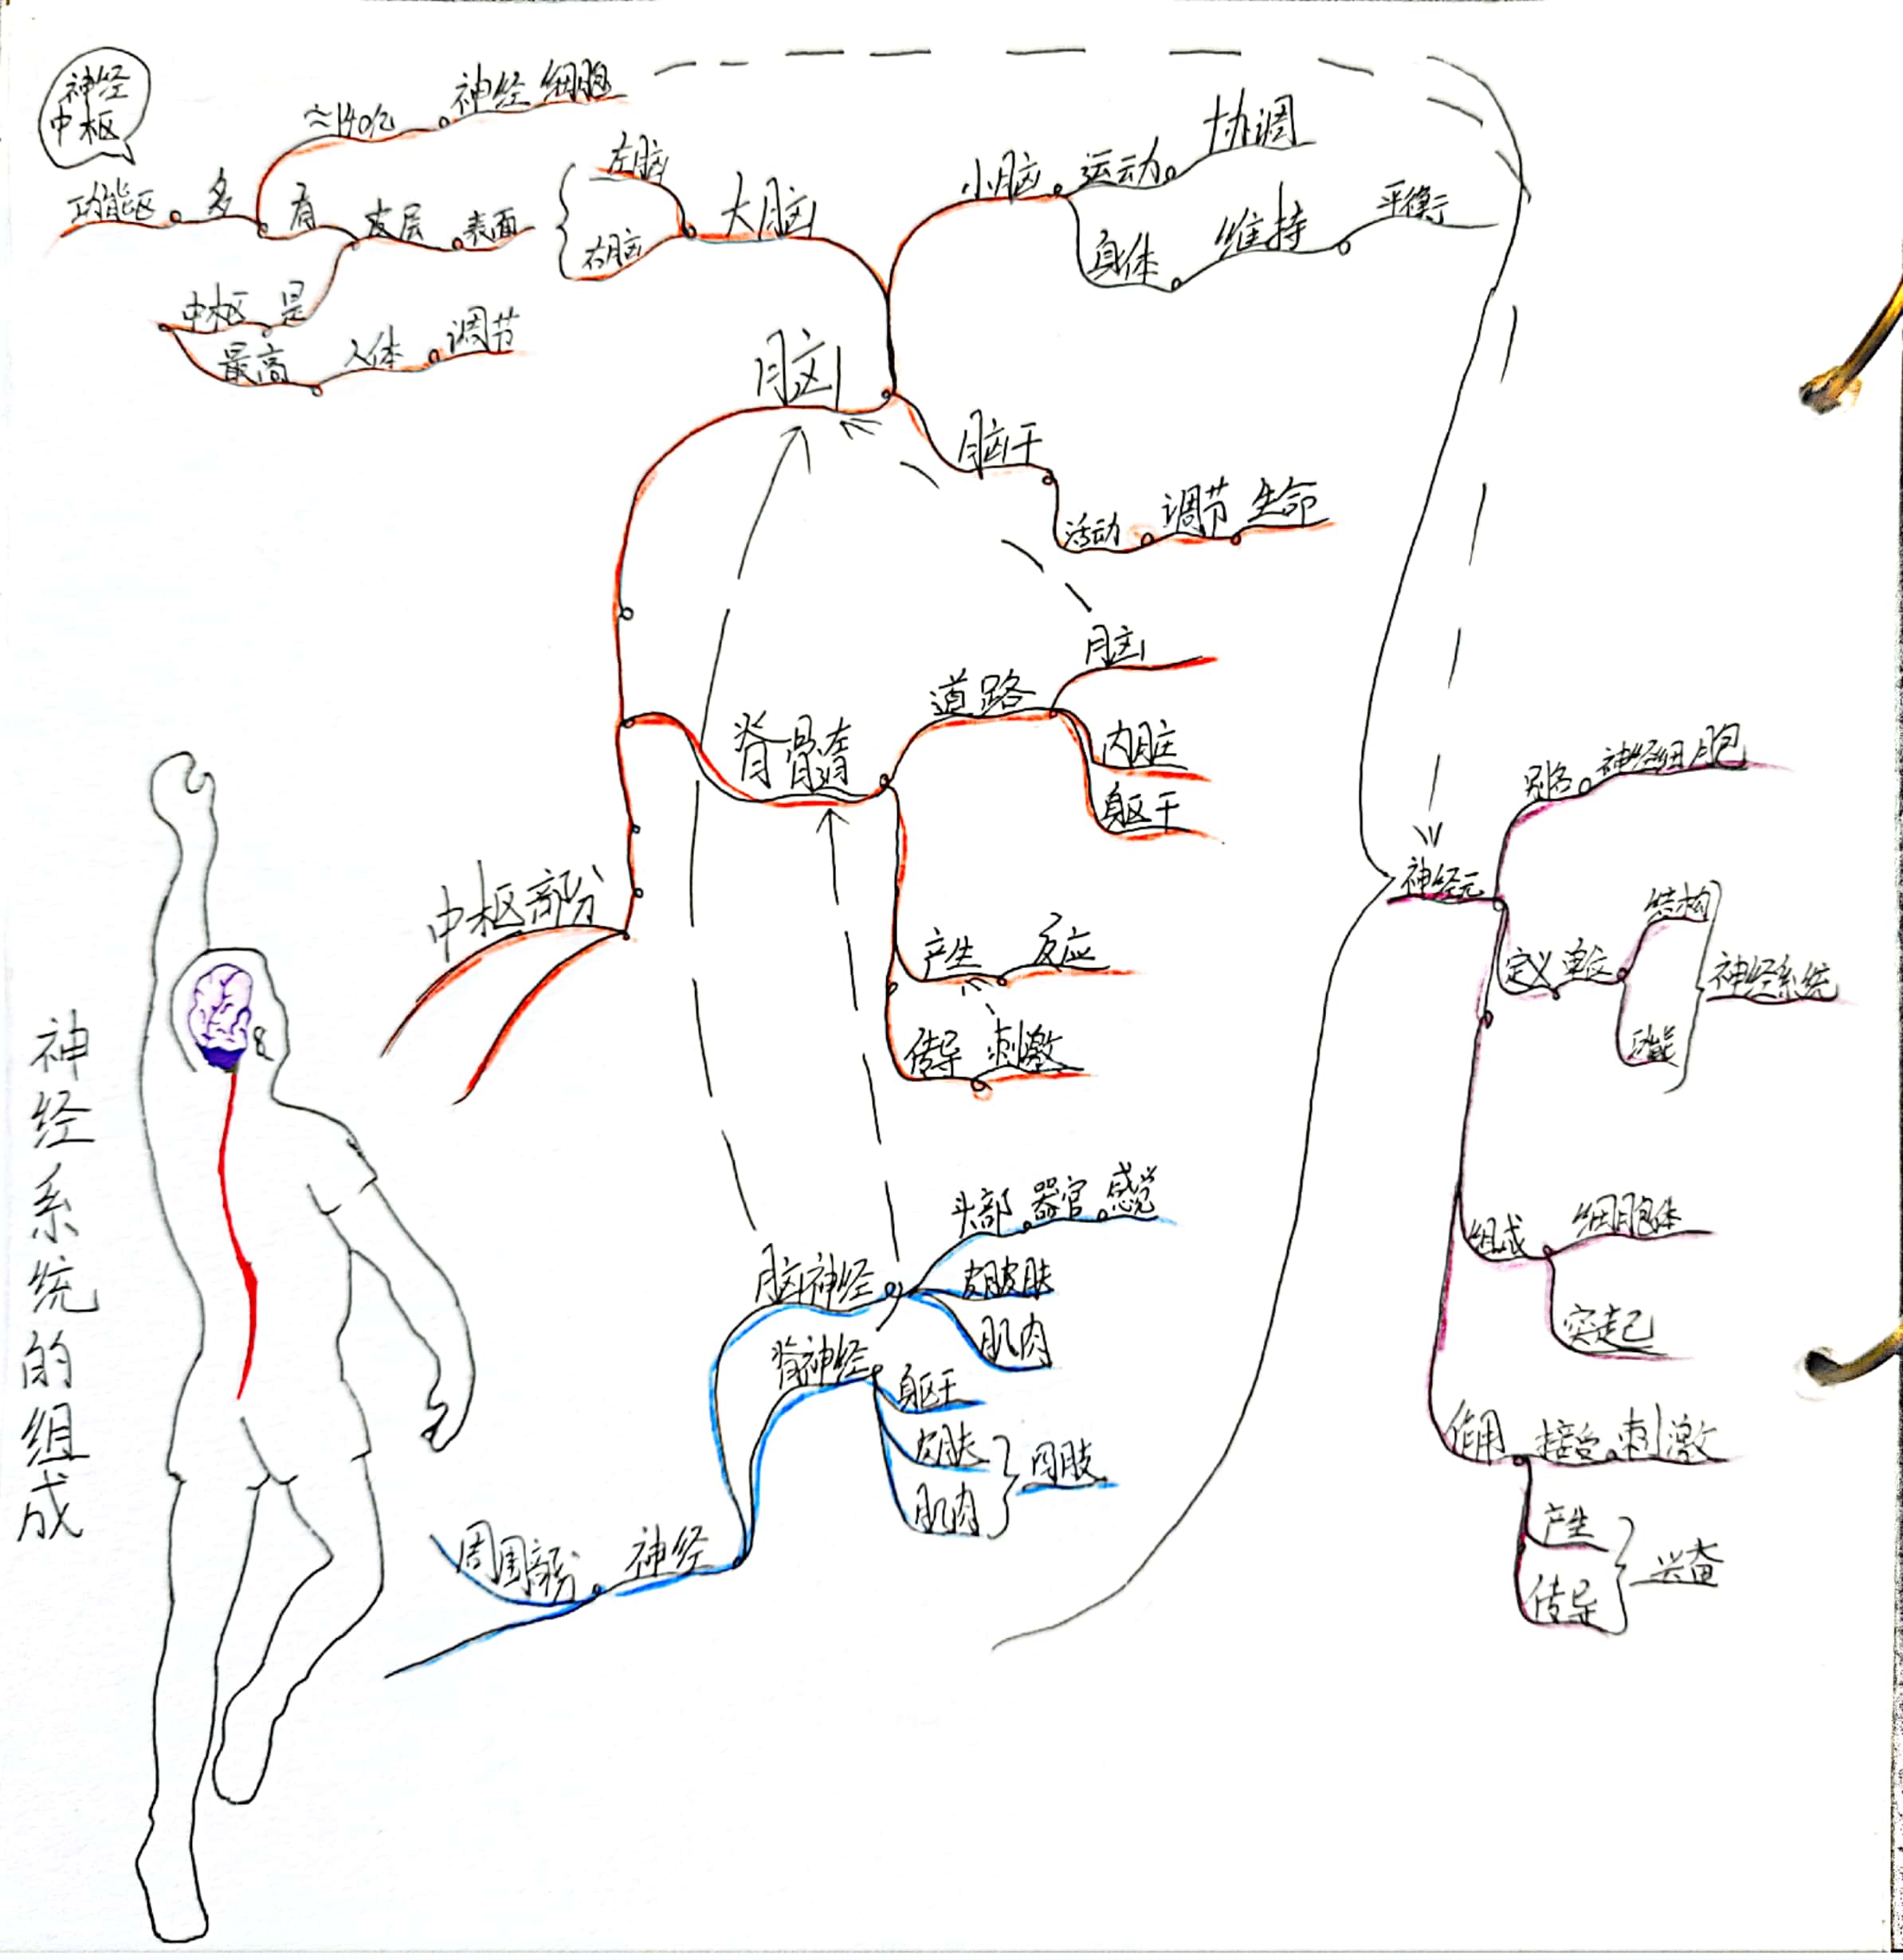 神经系统的组成
神经
中枢
功能区 多
≈140亿 神经细胞
有 皮层 表面
中枢 是
最高 人体 调节
左脑
右脑
大脑
小脑 运动 协调
身体 维持 平衡
脑
脑干
活动 调节 生命
脊髓
道路
脑
内脏
躯干
产生 反应
传导 刺激
中枢部分
脑神经
头部 器官 感觉
皮肤
肌肉
脊神经
躯干
皮肤
肌肉
四肢
周围部分 神经
神经元
别名 神经细胞
定义 单位
结构
功能
神经系统
组成
细胞体
突起
作用 接受 刺激
产生
传导
兴奋